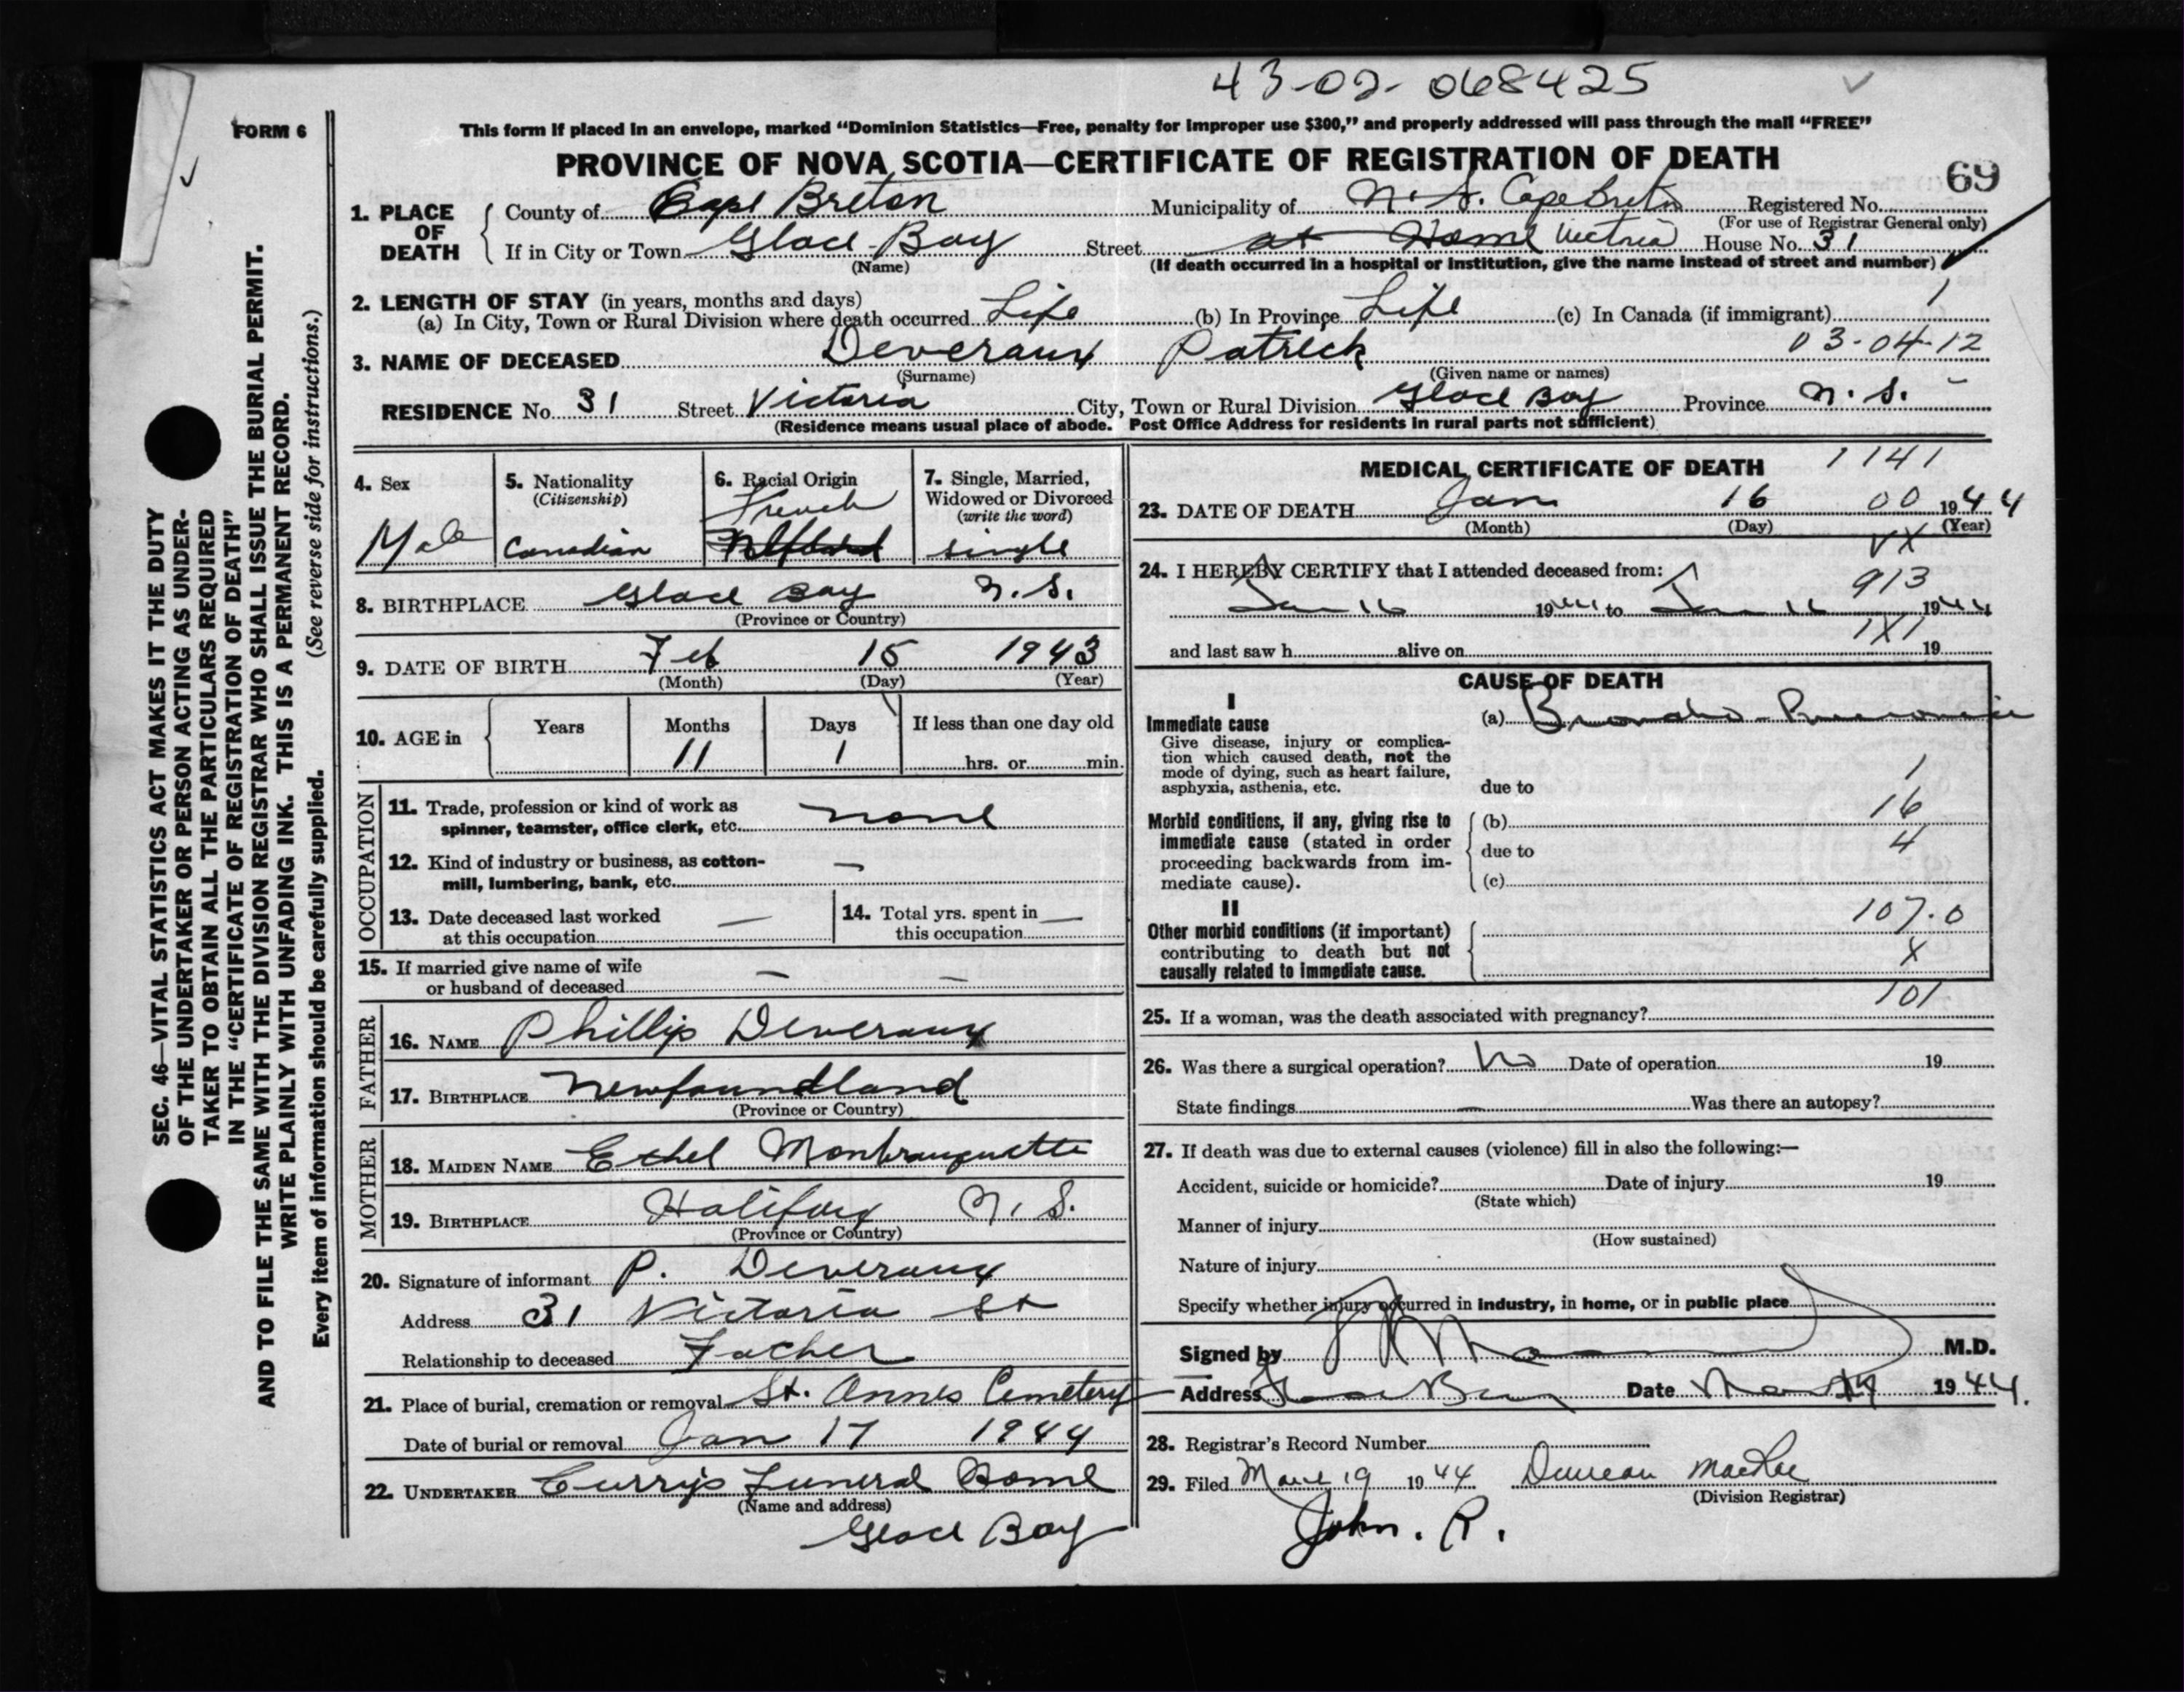 43-02-068425
FORM 6
This form if placed in an envelope, marked “Dominion Statistics—Free, penalty for improper use $300,” and properly addressed will pass through the mail “FREE”
PROVINCE OF NOVA SCOTIA—CERTIFICATE OF REGISTRATION OF DEATH
69
1. PLACE OF DEATH
County of Cape Breton Municipality of N.S. Cape Breton Registered No.
(For use of Registrar General only)
If in City or Town Glace-Bay Street at Home Victoria House No. 31
(Name) (If death occurred in a hospital or institution, give the name instead of street and number)
2. LENGTH OF STAY (in years, months and days)
(a) In City, Town or Rural Division where death occurred Life (b) In Province Life (c) In Canada (if immigrant) 1
3. NAME OF DECEASED Deveraux Patrick 03-04-12
(Surname) (Given name or names)
RESIDENCE No. 31 Street Victoria City, Town or Rural Division Glace Bay Province N.S. -
(Residence means usual place of abode. Post Office Address for residents in rural parts not sufficient)
4. Sex
Male
5. Nationality
(Citizenship)
Canadian
6. Racial Origin
French
Nfland
7. Single, Married, Widowed or Divorced
(write the word)
single
8. BIRTHPLACE Glace Bay N.S.
(Province or Country)
9. DATE OF BIRTH Feb 15 1943
(Month) (Day) (Year)
10. AGE in Years Months Days If less than one day old
11 1 hrs. or min.
OCCUPATION
11. Trade, profession or kind of work as
spinner, teamster, office clerk, etc. none
12. Kind of industry or business, as cotton-
mill, lumbering, bank, etc. —
13. Date deceased last worked —
at this occupation
14. Total yrs. spent in —
this occupation
15. If married give name of wife — —
or husband of deceased
FATHER
16. NAME Phillip Deveraux
17. BIRTHPLACE Newfoundland
(Province or Country)
MOTHER
18. MAIDEN NAME Ethel
19. BIRTHPLACE Halifax N.S.
(Province or Country)
20. Signature of informant P. Deveraux
Address 31 Victoria St
Relationship to deceased Father
21. Place of burial, cremation or removal St. Annes Cemetery
Date of burial or removal Jan 17 1944
22. UNDERTAKER Currys Funeral Home
(Name and address)
Glace Bay
MEDICAL CERTIFICATE OF DEATH 1141
23. DATE OF DEATH Jan 16 00 1944
(Month) (Day) (Year)
VX
24. I HEREBY CERTIFY that I attended deceased from:
913
Jan 16 1944 to Jan 16 1944
1X1
and last saw h alive on 19
CAUSE OF DEATH
I
Immediate cause (a) Broncho-Pneumonia
Give disease, injury or complica-
tion which caused death, not the
mode of dying, such as heart failure,
asphyxia, asthenia, etc. due to 1
Morbid conditions, if any, giving rise to (b) 16
immediate cause (stated in order due to 4
proceeding backwards from im-
mediate cause). (c)
II 107.0
Other morbid conditions (if important)
contributing to death but not X
causally related to immediate cause.
101
25. If a woman, was the death associated with pregnancy?
26. Was there a surgical operation? No Date of operation 19
State findings — Was there an autopsy?
27. If death was due to external causes (violence) fill in also the following:—
Accident, suicide or homicide? Date of injury 19
(State which)
Manner of injury
(How sustained)
Nature of injury
Specify whether injury occurred in industry, in home, or in public place
Signed by M.D.
Address Glace Bay Date 1944.
28. Registrar's Record Number
29. Filed March 19 1944 Duncan MacRae
(Division Registrar)
John. R.
SEC. 46—VITAL STATISTICS ACT MAKES IT THE DUTY
OF THE UNDERTAKER OR PERSON ACTING AS UNDER-
TAKER TO OBTAIN ALL THE PARTICULARS REQUIRED
IN THE “CERTIFICATE OF REGISTRATION OF DEATH”
AND TO FILE THE SAME WITH THE DIVISION REGISTRAR WHO SHALL ISSUE THE BURIAL PERMIT.
WRITE PLAINLY WITH UNFADING INK. THIS IS A PERMANENT RECORD.
Every item of information should be carefully supplied. (See reverse side for instructions.)